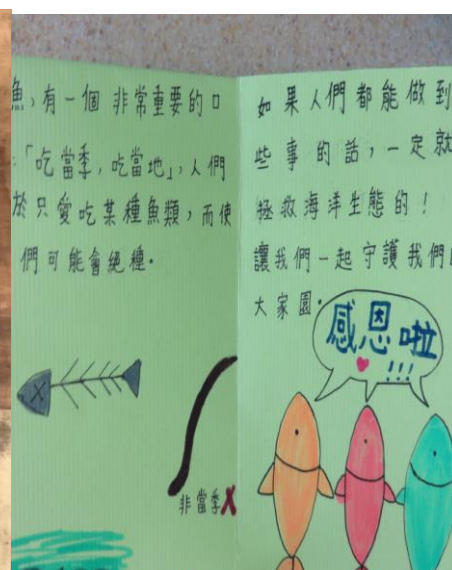 魚，有一個 非常重要的口
「吃當季，吃當地」，人們
於只愛吃某種魚類，而使
們可能會絕種。
非當季
如果人們都能做到
些事的話，一定就
拯救海洋生態的！
讓我們一起守護我們
大家園。
感恩啦
!!!